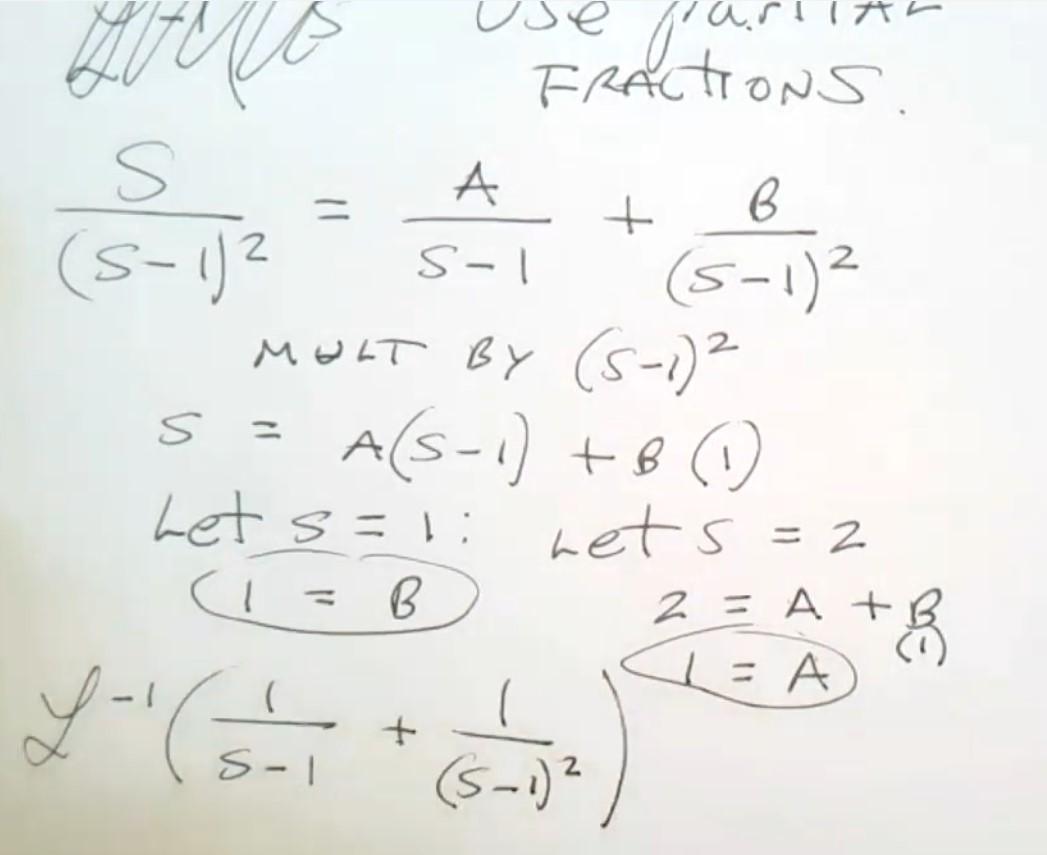 Use partial
FRACTIONS.
S/(S-1)² = A/(S-1) + B/(S-1)²
MULT BY (S-1)²
S = A(S-1) + B(1)
Let S = 1: Let S = 2
1 = B 2 = A + B
(1)
1 = A
ℒ⁻¹(1/(S-1) + 1/(S-1)²)